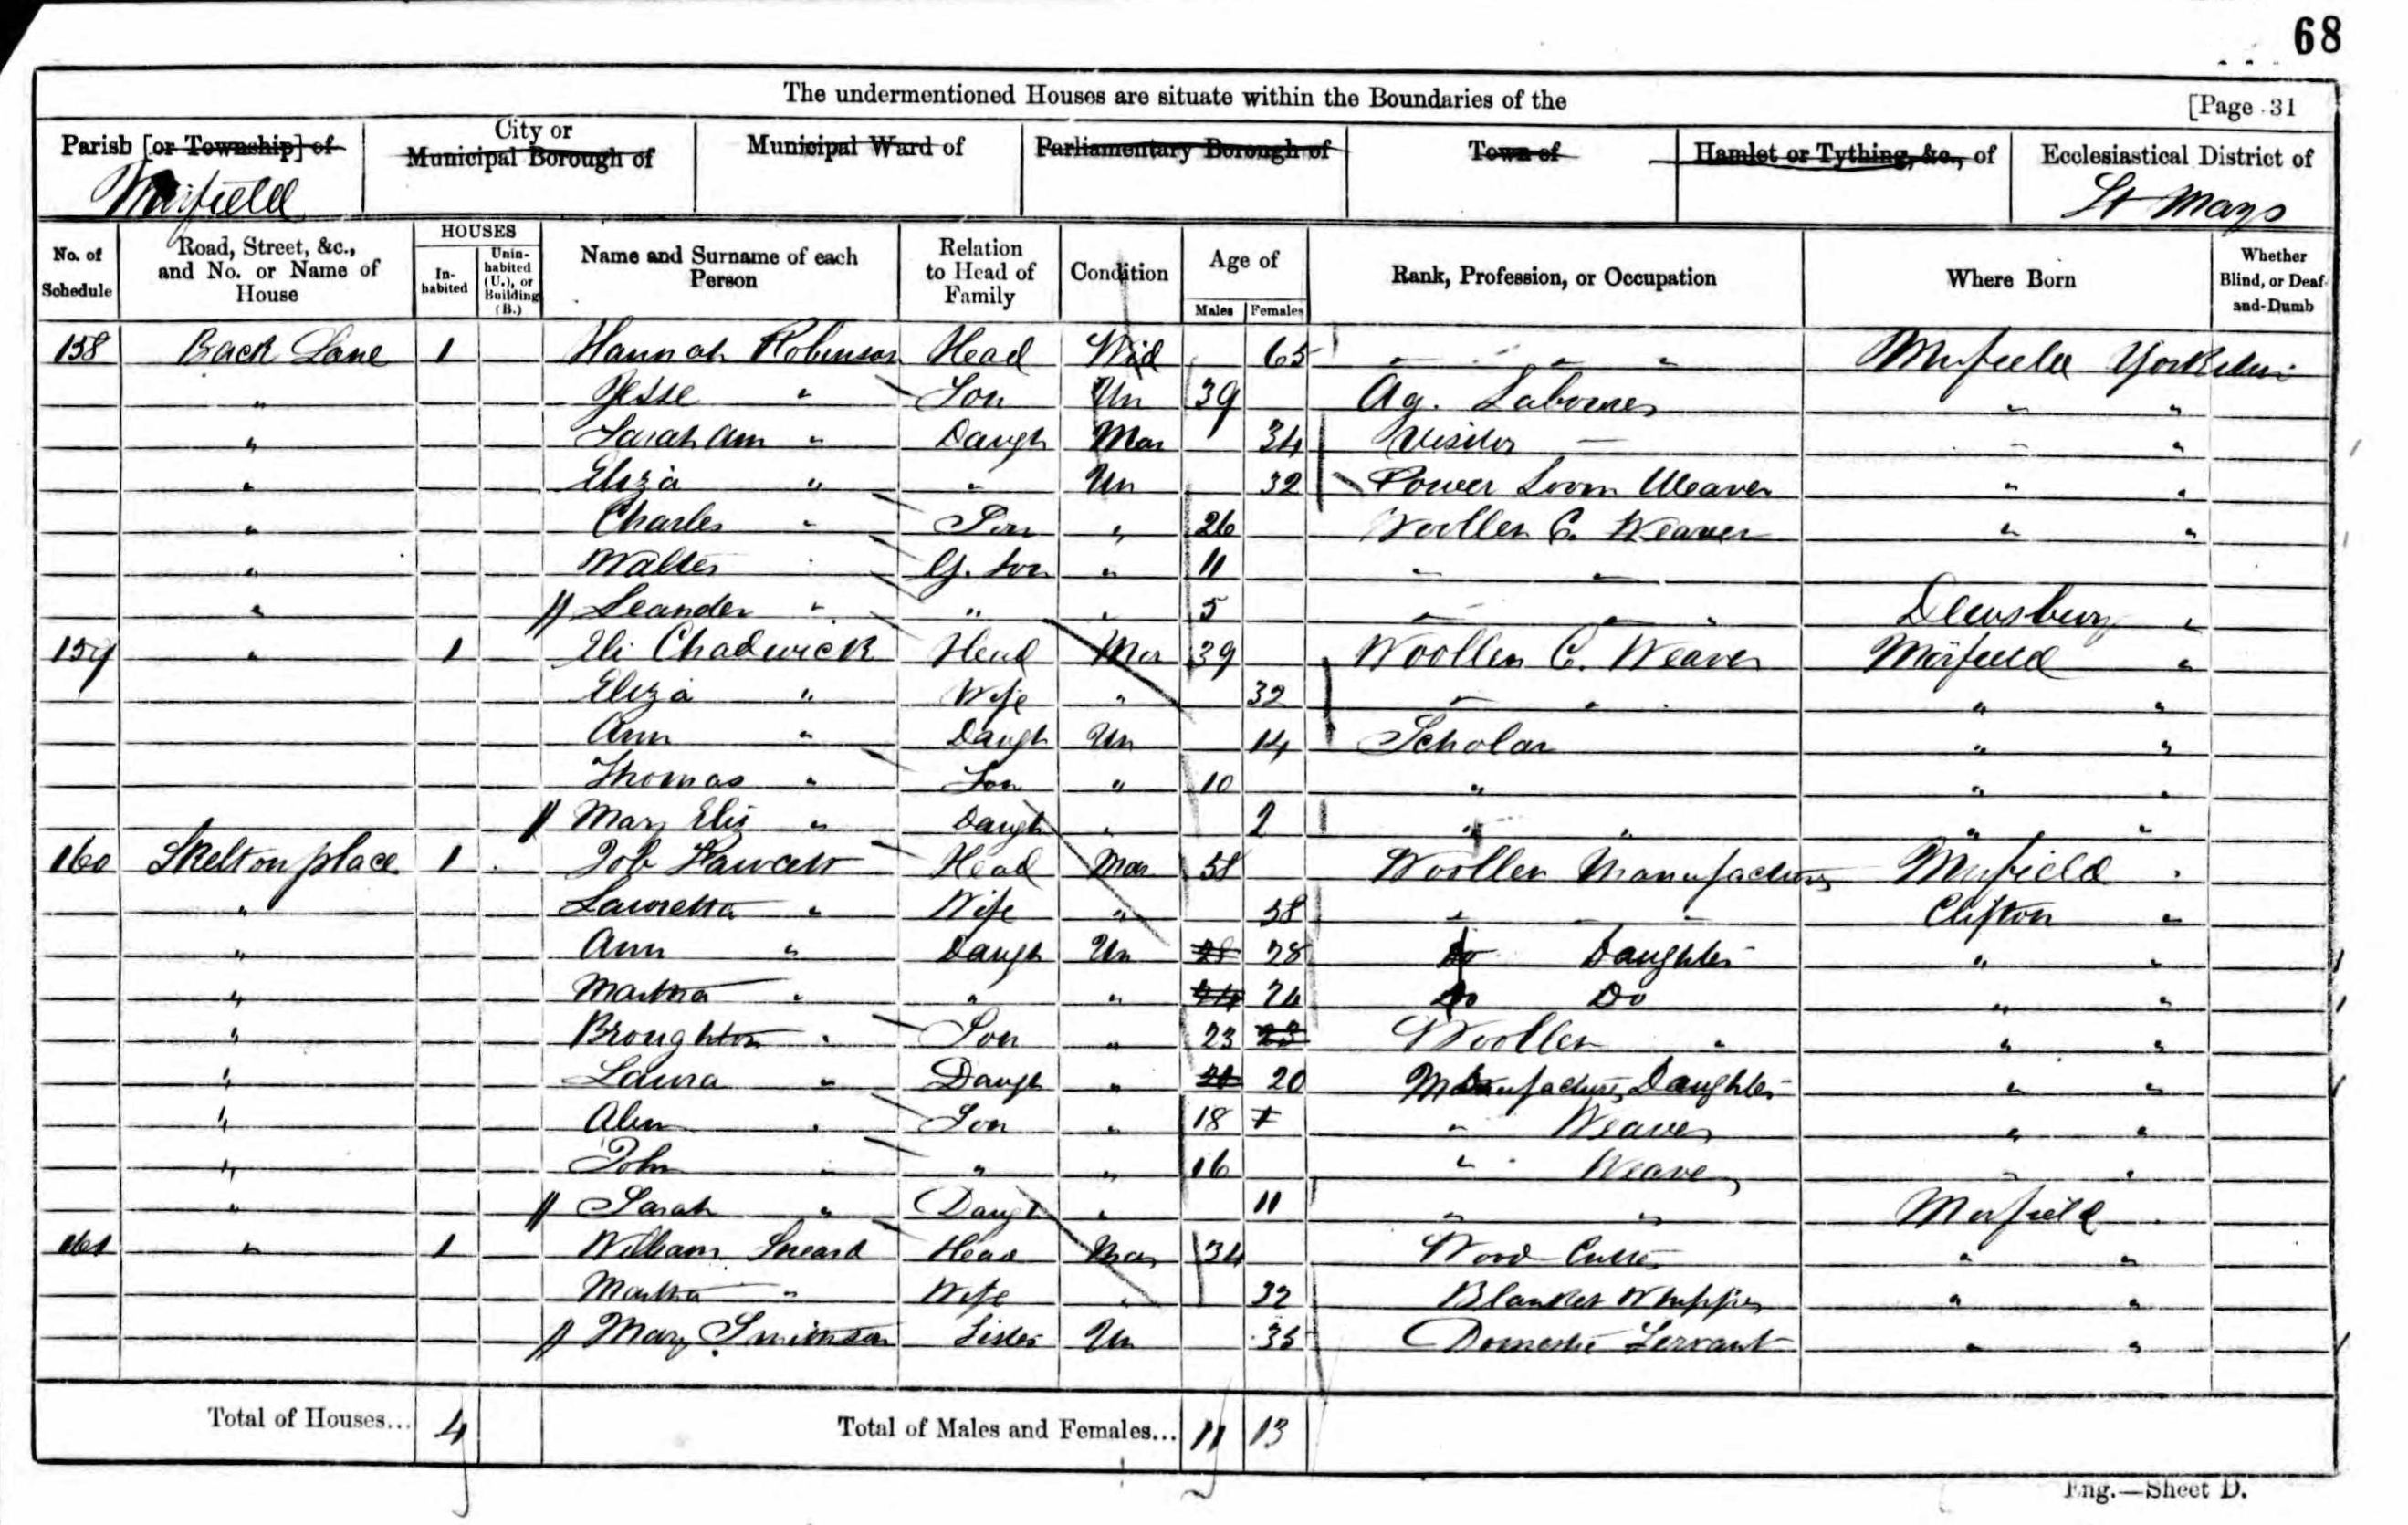 68
The undermentioned Houses are situate within the Boundaries of the
[Page 31
Parish [or Township] of
City or Municipal Borough of
Municipal Ward of
Parliamentary Borough of
Town of
Hamlet or Tything, &c., of
Ecclesiastical District of
Mirfield
St Marys
No. of Schedule
Road, Street, &c., and No. or Name of House
HOUSES
In-habited
Unin-habited (U.), or Building (B.)
Name and Surname of each Person
Relation to Head of Family
Condition
Age of
Males
Females
Rank, Profession, or Occupation
Where Born
Whether Blind, or Deaf-and-Dumb
158 Back Lane 1 Hannah Robinson Head Wid 65 " " " Mirfield Yorkshire
" Jesse " Son Un 39 Ag. Labourer " "
" Sarah Ann " Daugh Mar 34 Visitor — " "
" Eliza " " Un 32 Power Loom Weaver " "
" Charles " Son " 26 Woollen C. Weaver " "
" Walter " G. Son " 11 " " 
" Leander " " " 5 " " " Dewsbury "
159 " 1 Eli Chadwick Head Mar 39 Woollen C. Weaver Mirfield "
Eliza " Wife " 32 " " " " "
Ann " Daugh Un 14 Scholar " "
Thomas " Son " 10 " " "
Mary Eliz " Daugh " 2 " " " "
160 Skelton place 1 Job Fawcett Head Mar 58 Woollen Manufacturer Mirfield "
" Lauretta " Wife " 58 " " " Clifton "
" Ann " Daugh Un 28 28 Do Daughter " "
" Martha " " " 24 24 Do Do " "
" Broughton " Son " 23 23 Woollen " " "
" Laura " Daugh " 20 20 Manufacturers Daughter " "
" " Son " 18 " Weaver " "
" John " " " 16 " Weaver " "
" Sarah " Daugh " 11 " " Mirfield "
161 " 1 William Sheard Head Mar 34 Wood Cutter " "
Martha " Wife " 32 Blanket Whipper " "
Mary Smithson Sister Un 35 Domestic Servant " "
Total of Houses... 4
Total of Males and Females... 11 13
Eng.—Sheet D.